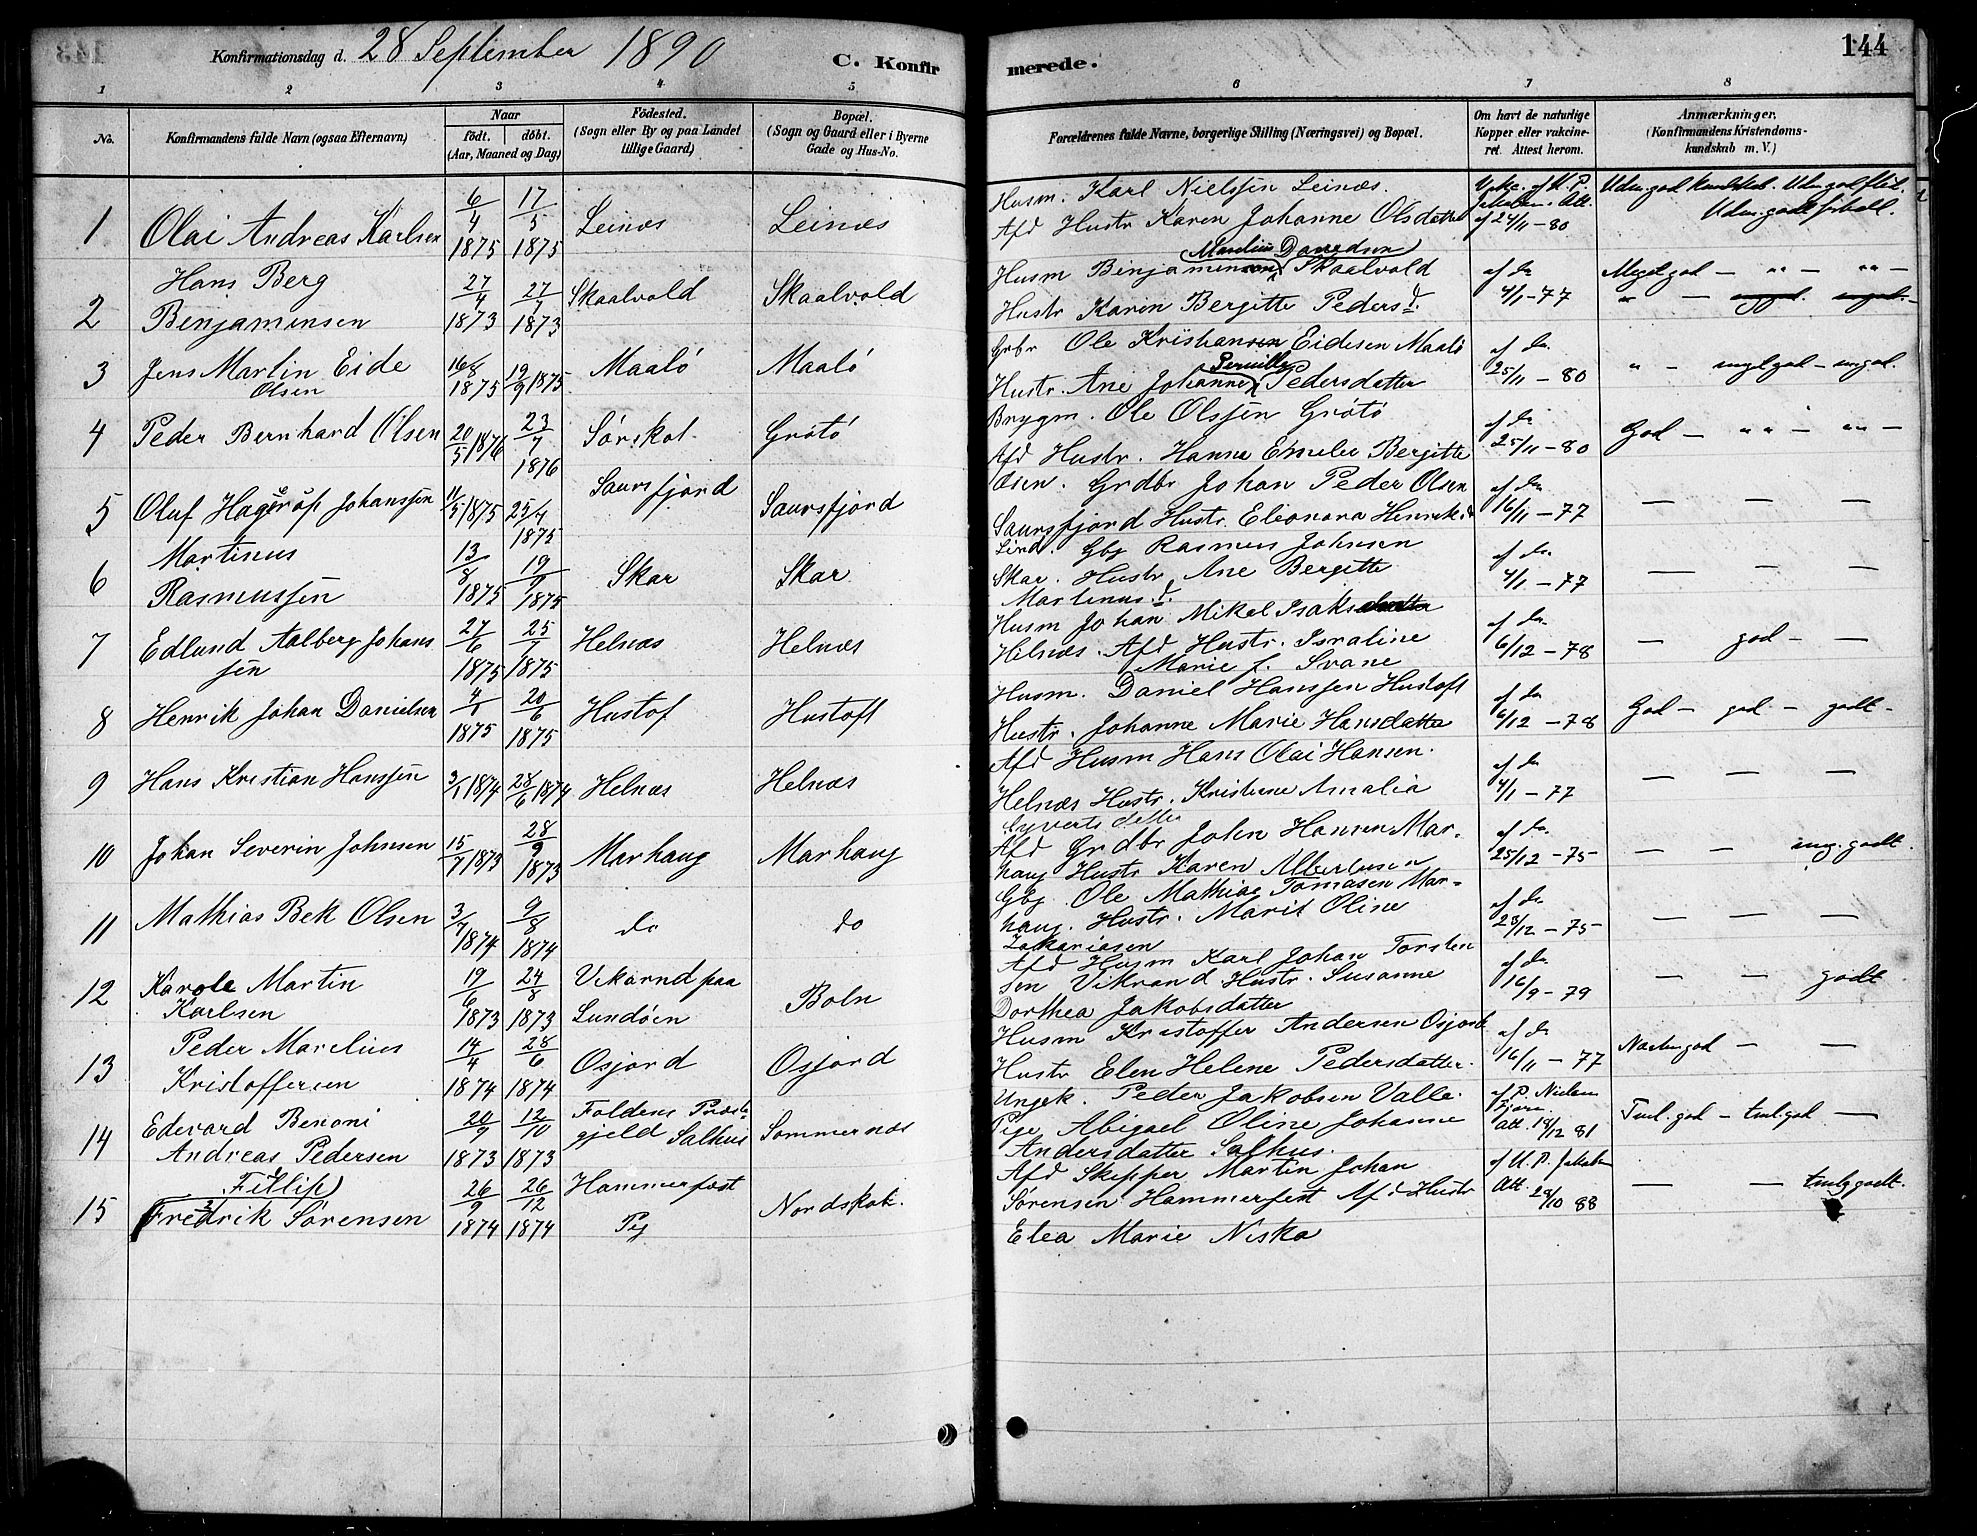 Konfirmationsdag d. 28 September 1890 C. Konfirmerede. 144
1 2 3 4 5 6 7 8
No. Konfirmandens fulde Navn (ogsaa Efternavn) Naar født. døbt. (Aar, Maaned og Dag) Födested. (Sogn eller By og paa Landet tillige Gaard) Bopæl. (Sogn og Gaard eller i Byerne Gade og Hus-No. Forældrenes fulde Navne, borgerlige Stilling (Næringsvei) og Bopæl. Om havt de naturlige Kopper eller vakcineret. Attest herom. Anmærkninger. (Konfirmandens Kristendomskundskab m. V.)
1 Olai Andreas Karlsen 6/4 1875 17/5 1875 Leinæs Leinæs
Husm. Karl Nielssen Leinæs.
Afd Hustr Karen Johanne Olsdatter
af 24/11 - 80
2 Hans Berg
Benjaminsen 27/4 1873 27/7 1873 Skaalvold Skaalvold
Husm Binjamin Skaalvold
Hustr Karen Bergitte Peders d.
af do 4/1 - 77 Meget god — „ — „ —
3 Jens Martin Eide
Olsen 16/8 1875 19/9 1875 Maalö Maalö
Grbr Ole Kristiansen Eidesen Maalö
Pernille
Hustr. Ane Johanne Pedersdatter
af do 25/11 - 80 „ - meget god - mgod.
4 Peder Bernhard Olsen 20/5 1876 23/7 1876 Sørskot Grötö
Brygm. Ole Olssen Grötö
Afd Hustr. Hanna Emelie Bergitte
Osen.
af do 25/11 - 80 God — „ — „ —
5 Oluf Hagerup Johanssen 11/3 1875 25/4 1875 Saursfjord Saursfjord
Grdbr Johan Peder Olsen
Saursfjord Hustr. Eleonora Henrik.d
Lind.
af do 16/11 - 77 — — —
6 Martinus
Rasmussen 13/8 1875 19/9 1875 Skar Skar
Gbr Rasmus Johnsen
Skar. Hustr Ane Bergitte
Martinus.d.
af do 4/1 - 77 — — —
7 Edlund Aalberg Johans
sen 27/6 1875 25/7 1875 Helnæs Helnæs
Husm Johan Mikal Isaks
Helnæs. Afd Hustr. Israline
Marie f. Svane
af do 6/12 - 78 — god — —
8 Henrik Johan Danielsen 4/1 1875 20/6 1875 Hustof Hustoft
Husm. Daniel Hanssen Hustoft
Hustr. Johanne Marie Hansdatter
af do 6/12 - 78 God - god - godt -
9 Hans Kristian Hanssen 3/1 1874 28/6 1874 Helnæs Helnæs
Afd Husm Hans Olai Hansen.
Helnæs Hustr. Kristine Amalia
Syverts datter
af do 4/1 - 77 — — —
10 Johan Severin Johnsen 15/7 1873 28/9 1873 Marhaug Marhaug
Afd Grdbr John Hansen Mar-
haug Hustr Karen Albertsen
af do 25/12 - 75 — — mg. godt.
11 Mathias Bek Olsen 3/7 1874 9/8 1874 do do
Gbr Ole Mathias Tomasen Mar-
haug. Hustr. Marit Oline
Zakariasen
af do 28/12 - 75 — — —
12 Karole Martin
Karlsen 19/6 1873 24/8 1873 Vikarnd paa
Lundöen Boln
Afd Husm Karl Johan Torsten
sen Vikrand Hustr. Susanne
Dorthea Jakobsdatter
af do 16/9 - 79 — — godt
13 Peder Marelius
Kristoffersen 14/4 1874 28/6 1874 Osjord Osjord
Husm Kristoffer Andersen Osjord
Hustr Elen Helene Pedersdatter.
af do 16/11 - 77 Næsten god — —
14 Edevard Benoni
Andreas Pedersen 20/9 1873 12/10 1873 Foldens Præste
gjeld Salhus Sommernæs
Ungk. Peder Jakobsen Valle.
Pige Abigael Oline Johanne
Andersdatter Salhus.
af P. Nielsen
Att. 18/12 81 Tml. god - tml. god —
15 Fillip
Fredrik Sørensen 26/9 1874 26/12 1874 Hammerfest Nordskot.
Afd Skipper Martin Johan
Sørensen Hammerfest Afd Hustr
Elea Marie Niska
Att. 28/10 88 — — tmlg godt.